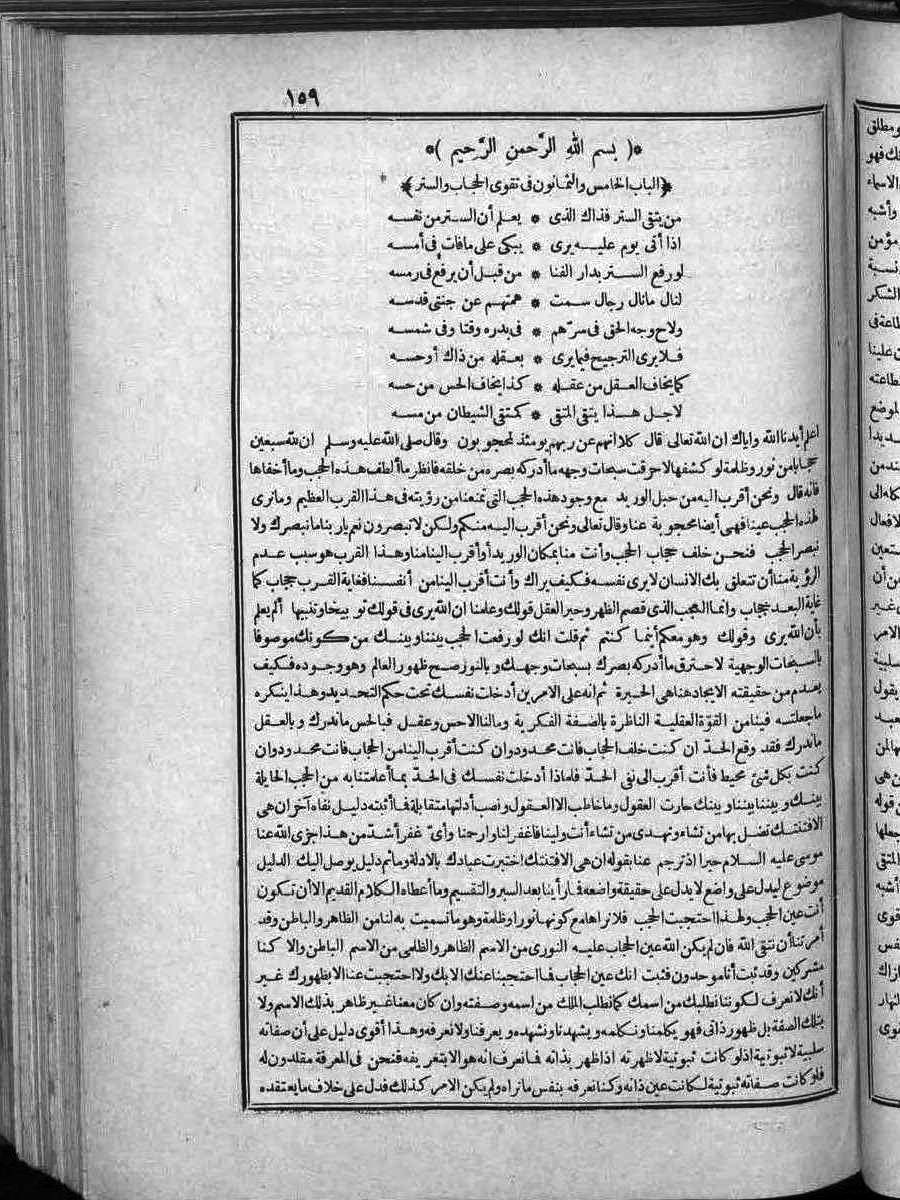 ١٥٩
*( بسم الله الرَّحمن الرَّحيم )*
﴿الباب الخامس والثمانون فى تقوى الحجاب والستر﴾
من يتقى الستر فذاك الذى * يعلم أن الستر من نفسه
اذا أتى يوم عليه يرى * يبكى على مافات فى أمسه
لو رفع الستر بدار الفنا * من قبل أن يرفع فى رمسه
لنال مانال رجال سمت * همتهم عن جنتى قدسه
ولاح وجه الحق فى سرّهم * فى بدره وقتا وفى شمسه
فلا يرى الترجيح فيما يرى * بعقله من ذاك أو حسه
كما يخاف العقل من عقله * كذا يخاف الحس من حسه
لاجل هذا يتقى المتقى * كمتقى الشيطان من مسه
اعلم أيدنا الله واياك ان الله تعالى قال كلا انهم عن ربهم يومئذ لمحجوبون وقال صلى الله عليه وسلم ان لله سبعين
حجابا من نور وظلمة لو كشفها لاحرقت سبحات وجهه ما أدركه بصره من خلقه فانظر ما ألطف هذه الحجب وما أخفاها
فانه قال ونحن أقرب اليه من حبل الوريد مع وجود هذه الحجب التى تمنعنا من رؤيته فى هذا القرب العظيم وما نرى
لهذه الحجب عينا فهى أيضا محجوبة عنا وقال تعالى ونحن أقرب اليه منكم ولكن لا تبصرون نعم ياربنا ما نبصرك ولا
نبصر الحجب فنحن خلف حجاب الحجب وأنت منا بمكان الوريد أو أقرب الينا منا وهذا القرب هو سبب عدم
الرؤية منا أن تتعلق بك الانسان لا يرى نفسه فكيف يراك وأنت أقرب الينا من أنفسنا فغاية القرب حجاب كما
غاية البعد حجاب وانما العجب الذى قصم الظهر وحير العقل قولك وعلمنا ان الله يرى فى قولك توبيخا وتنبيها ألم يعلم
بأن الله يرى وقولك وهو معكم أينما كنتم ثم قلت انك لو رفعت الحجب بيننا وبينك من كونك موصوفا
بالسبحات الوجهية لاحترق ما أدركه بصرك بسبحات وجهك وبالنور صح ظهور العالم وهو وجوده فكيف
يعدم من حقيقته الايجاد هنا هى الحيرة ثم انه على الامرين أدخلت نفسك تحت حكم التحديد وهذا ينكره
ما جعلته فينا من القوّة العقلية الناظرة بالصفة الفكرية ومالنا الا حس وعقل فبالحس ما ندرك وبالعقل
ما ندرك فقد وقع الحدّ ان كنت خلف الحجاب فانت محدود وان كنت أقرب الينا من الحجاب فانت محدود وان
كنت بكل شئ محيط فأنت أقرب الى نفى الحدّ فلماذا أدخلت نفسك فى الحدّ بما أعلمتنا به من الحجب الحايلة
بينك وبيننا وبيننا وبينك حارت العقول وما خاطب الا العقول ونصب أدلتها متقابلة فما أثبته دليل نفاه آخر ان هى
الا فتنتك تضل بها من تشاء وتهدى من تشاء أنت ولينا فاغفر لنا وارحمنا وأىّ غفر أشدّ من هذا جزى الله عنا
موسى عليه السلام خيرا اذ ترجم عنا بقوله ان هى الا فتنتك اختبرت عبادك بالادلة وما ثم دليل يوصل اليك الدليل
موضوع ليدل على واضع لا يدل على حقيقة واضعه فما رأينا بعد السبر والتقسيم وما أعطاه الكلام القديم الا أن تكون
أنت عين الحجب ولهذا احتجبت الحجب فلا نراها مع كونها نورا وظلمة وهو ما تسميت به لنا من الظاهر والباطن وقد
أمرتنا أن نتقى الله فان لم يكن الله عين الحجاب عليه النورى من الاسم الظاهر والظلمى من الاسم الباطن والا كنا
مشركين وقد ثبت أنا موحدون فثبت انك عين الحجاب فما احتجبنا عنك الا بك ولا احتجبت عنا الا بظهورك غير
أنك لا نعرف لكوننا نطلبك من اسمك كما نطلب الملك من اسمه وصفته وان كان معنا غير ظاهر بذلك الاسم ولا
بتلك الصفة بل ظهور ذاتى فهو يكلمنا ونكلمه ويشهدنا ونشهده ويعرفنا ولا نعرفه وهذا أقوى دليل على أن صفاته
سلبية لا ثبوتية اذ لو كانت ثبوتية لاظهرته اذا ظهر بذاته فما نعرف انه هو الا بتعريفه فنحن فى المعرفة مقلدون له
فلو كانت صفاته ثبوتية لكانت عين ذاته وكنا نعرفه بنفس ما نراه ولم يكن الامر كذلك فدل على خلاف ما يعتقده